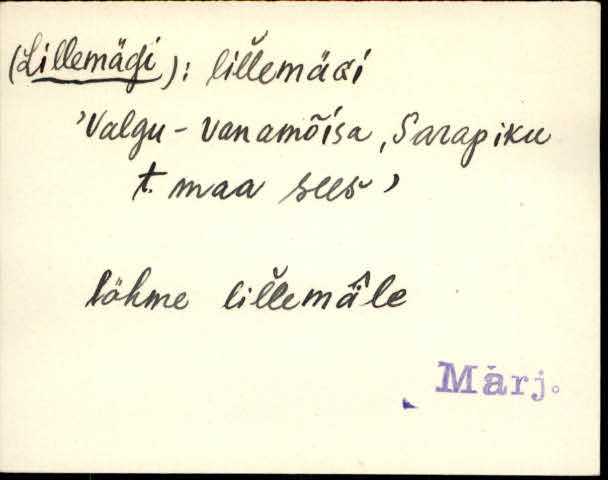 (Lillemägi): lil̆lemäGi
'Valgu-Vanamõisa, Sarapiku
t. maa sees'
löhme lil̆lemä̂le
Märj.